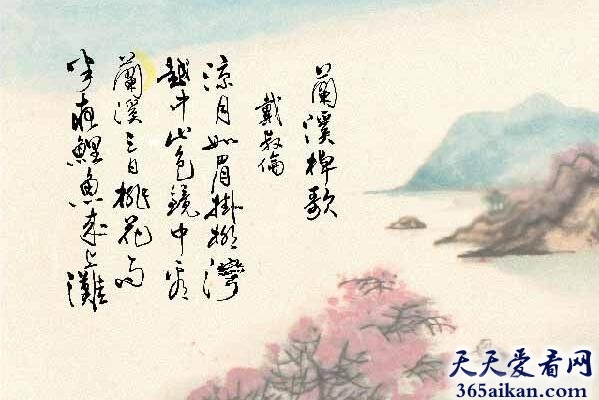 蘭溪棹歌
戴叔倫
涼月如眉掛柳灣
越中山色鏡中看
蘭溪三日桃花雨
半夜鯉魚來上灘
天天爱看网
365aikan.com